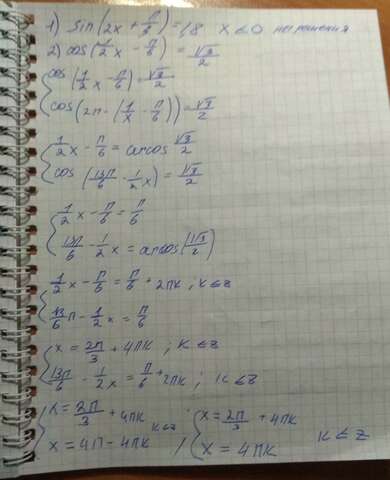 1) sin(2x + π/3) = 1,8   x ∈ ∅   нет решения
2) cos(1/2 x - π/6) = √3/2
{ cos(1/2 x - π/6) = √3/2
cos(2π - (1/x - π/6)) = √3/2
{ 1/2 x - π/6 = arcos √3/2
cos(13π/6 - 1/2 x) = √3/2
{ 1/2 x - π/6 = π/6
13π/6 - 1/2 x = arcos(√3/2)
{ 1/2 x - π/6 = π/6 + 2πk ; k ∈ z
13/6 π - 1/2 x = π/6
{ x = 2π/3 + 4πk ; k ∈ z
13π/6 - 1/2 x = π/6 + 2πk ; k ∈ z
{ x = 2π/3 + 4πk   k ∈ z ; { x = 2π/3 + 4πk
x = 4π - 4πk   x = 4πk   k ∈ z